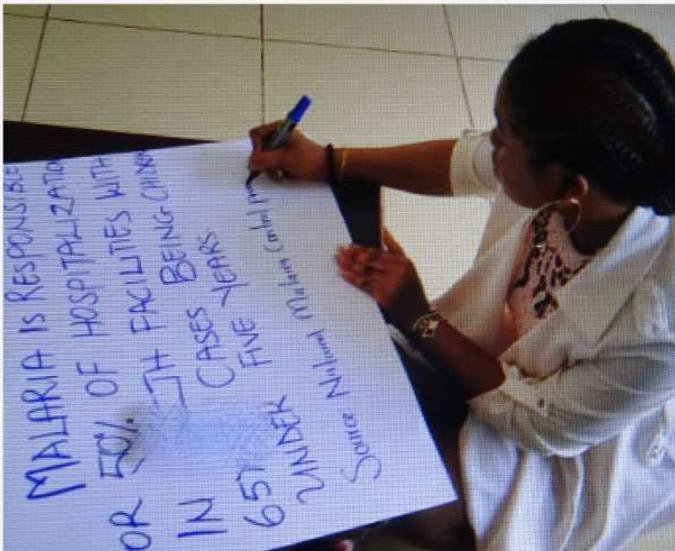 MALARIA IS RESPONSIBLE
OR 50% OF HOSPITALIZATIO
IN FACILITIES WITH
65% CASES BEING
UNDER FIVE YEARS
Source National Malaria Control